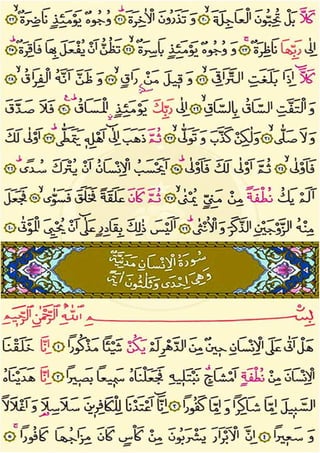 كَلَّا بَلْ تُحِبُّونَ الْعَاجِلَةَ ﴿٢٠﴾ وَتَذَرُونَ الْآخِرَةَ ﴿٢١﴾ وُجُوهٌ يَوْمَئِذٍ نَاضِرَةٌ ﴿٢٢﴾
إِلَى رَبِّهَا نَاظِرَةٌ ﴿٢٣﴾ وَوُجُوهٌ يَوْمَئِذٍ بَاسِرَةٌ ﴿٢٤﴾ تَظُنُّ أَنْ يُفْعَلَ بِهَا فَاقِرَةٌ ﴿٢٥﴾
كَلَّا إِذَا بَلَغَتِ التَّرَاقِيَ ﴿٢٦﴾ وَقِيلَ مَنْ رَاقٍ ﴿٢٧﴾ وَظَنَّ أَنَّهُ الْفِرَاقُ ﴿٢٨﴾
وَالْتَفَّتِ السَّاقُ بِالسَّاقِ ﴿٢٩﴾ إِلَى رَبِّكَ يَوْمَئِذٍ الْمَسَاقُ ﴿٣٠﴾ فَلَا صَدَّقَ
وَلَا صَلَّى ﴿٣١﴾ وَلَكِنْ كَذَّبَ وَتَوَلَّى ﴿٣٢﴾ ثُمَّ ذَهَبَ إِلَى أَهْلِهِ يَتَمَطَّى ﴿٣٣﴾ أَوْلَى لَكَ
فَأَوْلَى ﴿٣٤﴾ ثُمَّ أَوْلَى لَكَ فَأَوْلَى ﴿٣٥﴾ أَيَحْسَبُ الْإِنْسَانُ أَنْ يُتْرَكَ سُدًى ﴿٣٦﴾
أَلَمْ يَكُ نُطْفَةً مِنْ مَنِيٍّ يُمْنَى ﴿٣٧﴾ ثُمَّ كَانَ عَلَقَةً فَخَلَقَ فَسَوَّى ﴿٣٨﴾ فَجَعَلَ
مِنْهُ الزَّوْجَيْنِ الذَّكَرَ وَالْأُنْثَى ﴿٣٩﴾ أَلَيْسَ ذَلِكَ بِقَادِرٍ عَلَى أَنْ يُحْيِيَ الْمَوْتَى ﴿٤٠﴾
سُورَةُ الْإِنْسَانِ مَدَنِيَّةٌ
وَهِيَ إِحْدَى وَثَلَاثُونَ آيَةً
بِسْمِ اللَّهِ الرَّحْمَنِ الرَّحِيمِ
هَلْ أَتَى عَلَى الْإِنْسَانِ حِينٌ مِنَ الدَّهْرِ لَمْ يَكُنْ شَيْئًا مَذْكُورًا ﴿١﴾ إِنَّا خَلَقْنَا
الْإِنْسَانَ مِنْ نُطْفَةٍ أَمْشَاجٍ نَبْتَلِيهِ فَجَعَلْنَاهُ سَمِيعًا بَصِيرًا ﴿٢﴾ إِنَّا هَدَيْنَاهُ
السَّبِيلَ إِمَّا شَاكِرًا وَإِمَّا كَفُورًا ﴿٣﴾ إِنَّا أَعْتَدْنَا لِلْكَافِرِينَ سَلَاسِلَ وَأَغْلَالًا
وَسَعِيرًا ﴿٤﴾ إِنَّ الْأَبْرَارَ يَشْرَبُونَ مِنْ كَأْسٍ كَانَ مِزَاجُهَا كَافُورًا ﴿٥﴾